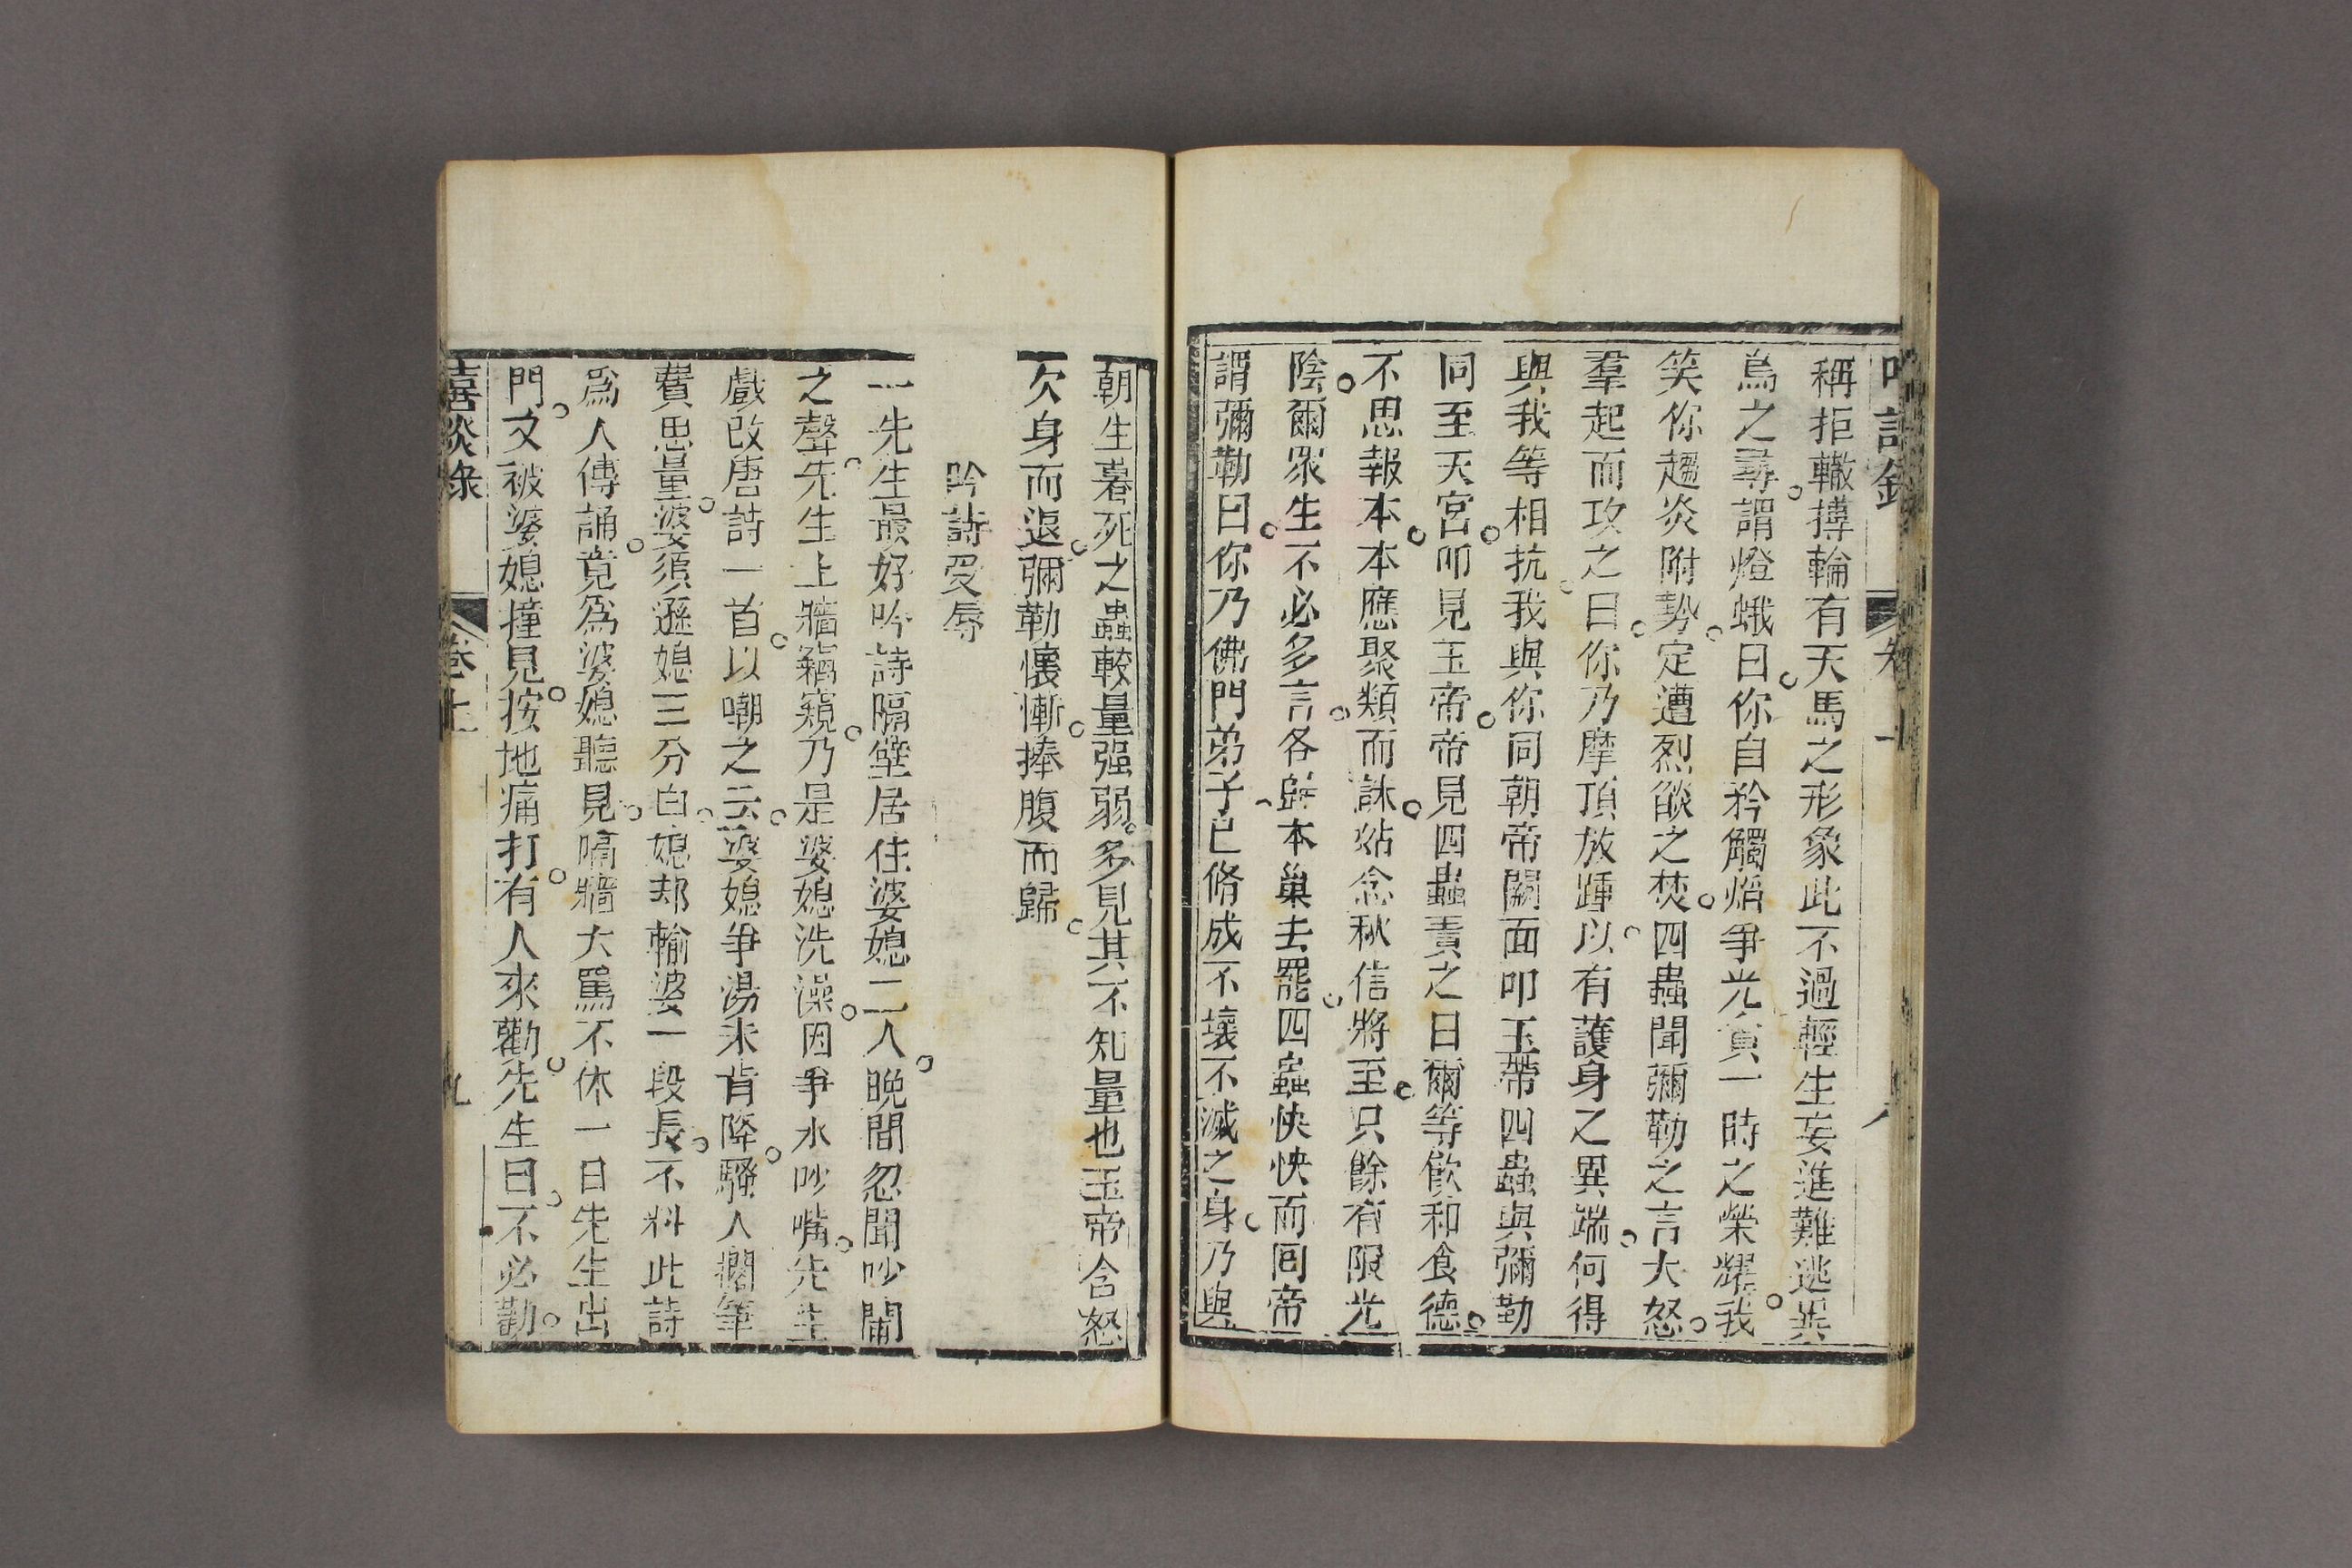 稱拒轍摶輪有天馬之形象此不過輕生妄進難逃異
鳥之尋謂燈蛾曰你自矜觸焰爭光負一時之榮耀我
笑你趨炎附勢定遭烈燄之焚四蟲聞彌勒之言大怒
羣起而攻之曰你乃摩頂放踵以有護身之異端何得
與我等相抗我與你同朝帝闕面叩玉帶四蟲與彌勒
同至天宮叩見玉帝帝見四蟲責之曰爾等飲和食德
不思報本本應聚類而誅姑念秋信將至只餘有限光
陰爾眾生不必多言各歸本巢去罷四蟲怏怏而囘帝
謂彌勒曰你乃佛門弟子已脩成不壞不滅之身乃與
朝生暮死之蟲較量强弱多見其不知量也玉帝含怒
欠身而退彌勒懷慚捧腹而歸
吟詩受辱
一先生最好吟詩隔壁居住婆媳二人晚間忽聞吵鬧
之聲先生上牆竊窺乃是婆媳洗澡因爭水吵嘴先生
戲改唐詩一首以嘲之云婆媳爭湯未肯降騷人擱筆
費思量婆須遜媳三分白媳却輸婆一段長不料此詩
爲人傳誦竟爲婆媳聽見嗝牆大駡不休一日先生出
門又被婆媳撞見按地痛打有人來勸先生曰不必勸
喜談錄
卷上
九